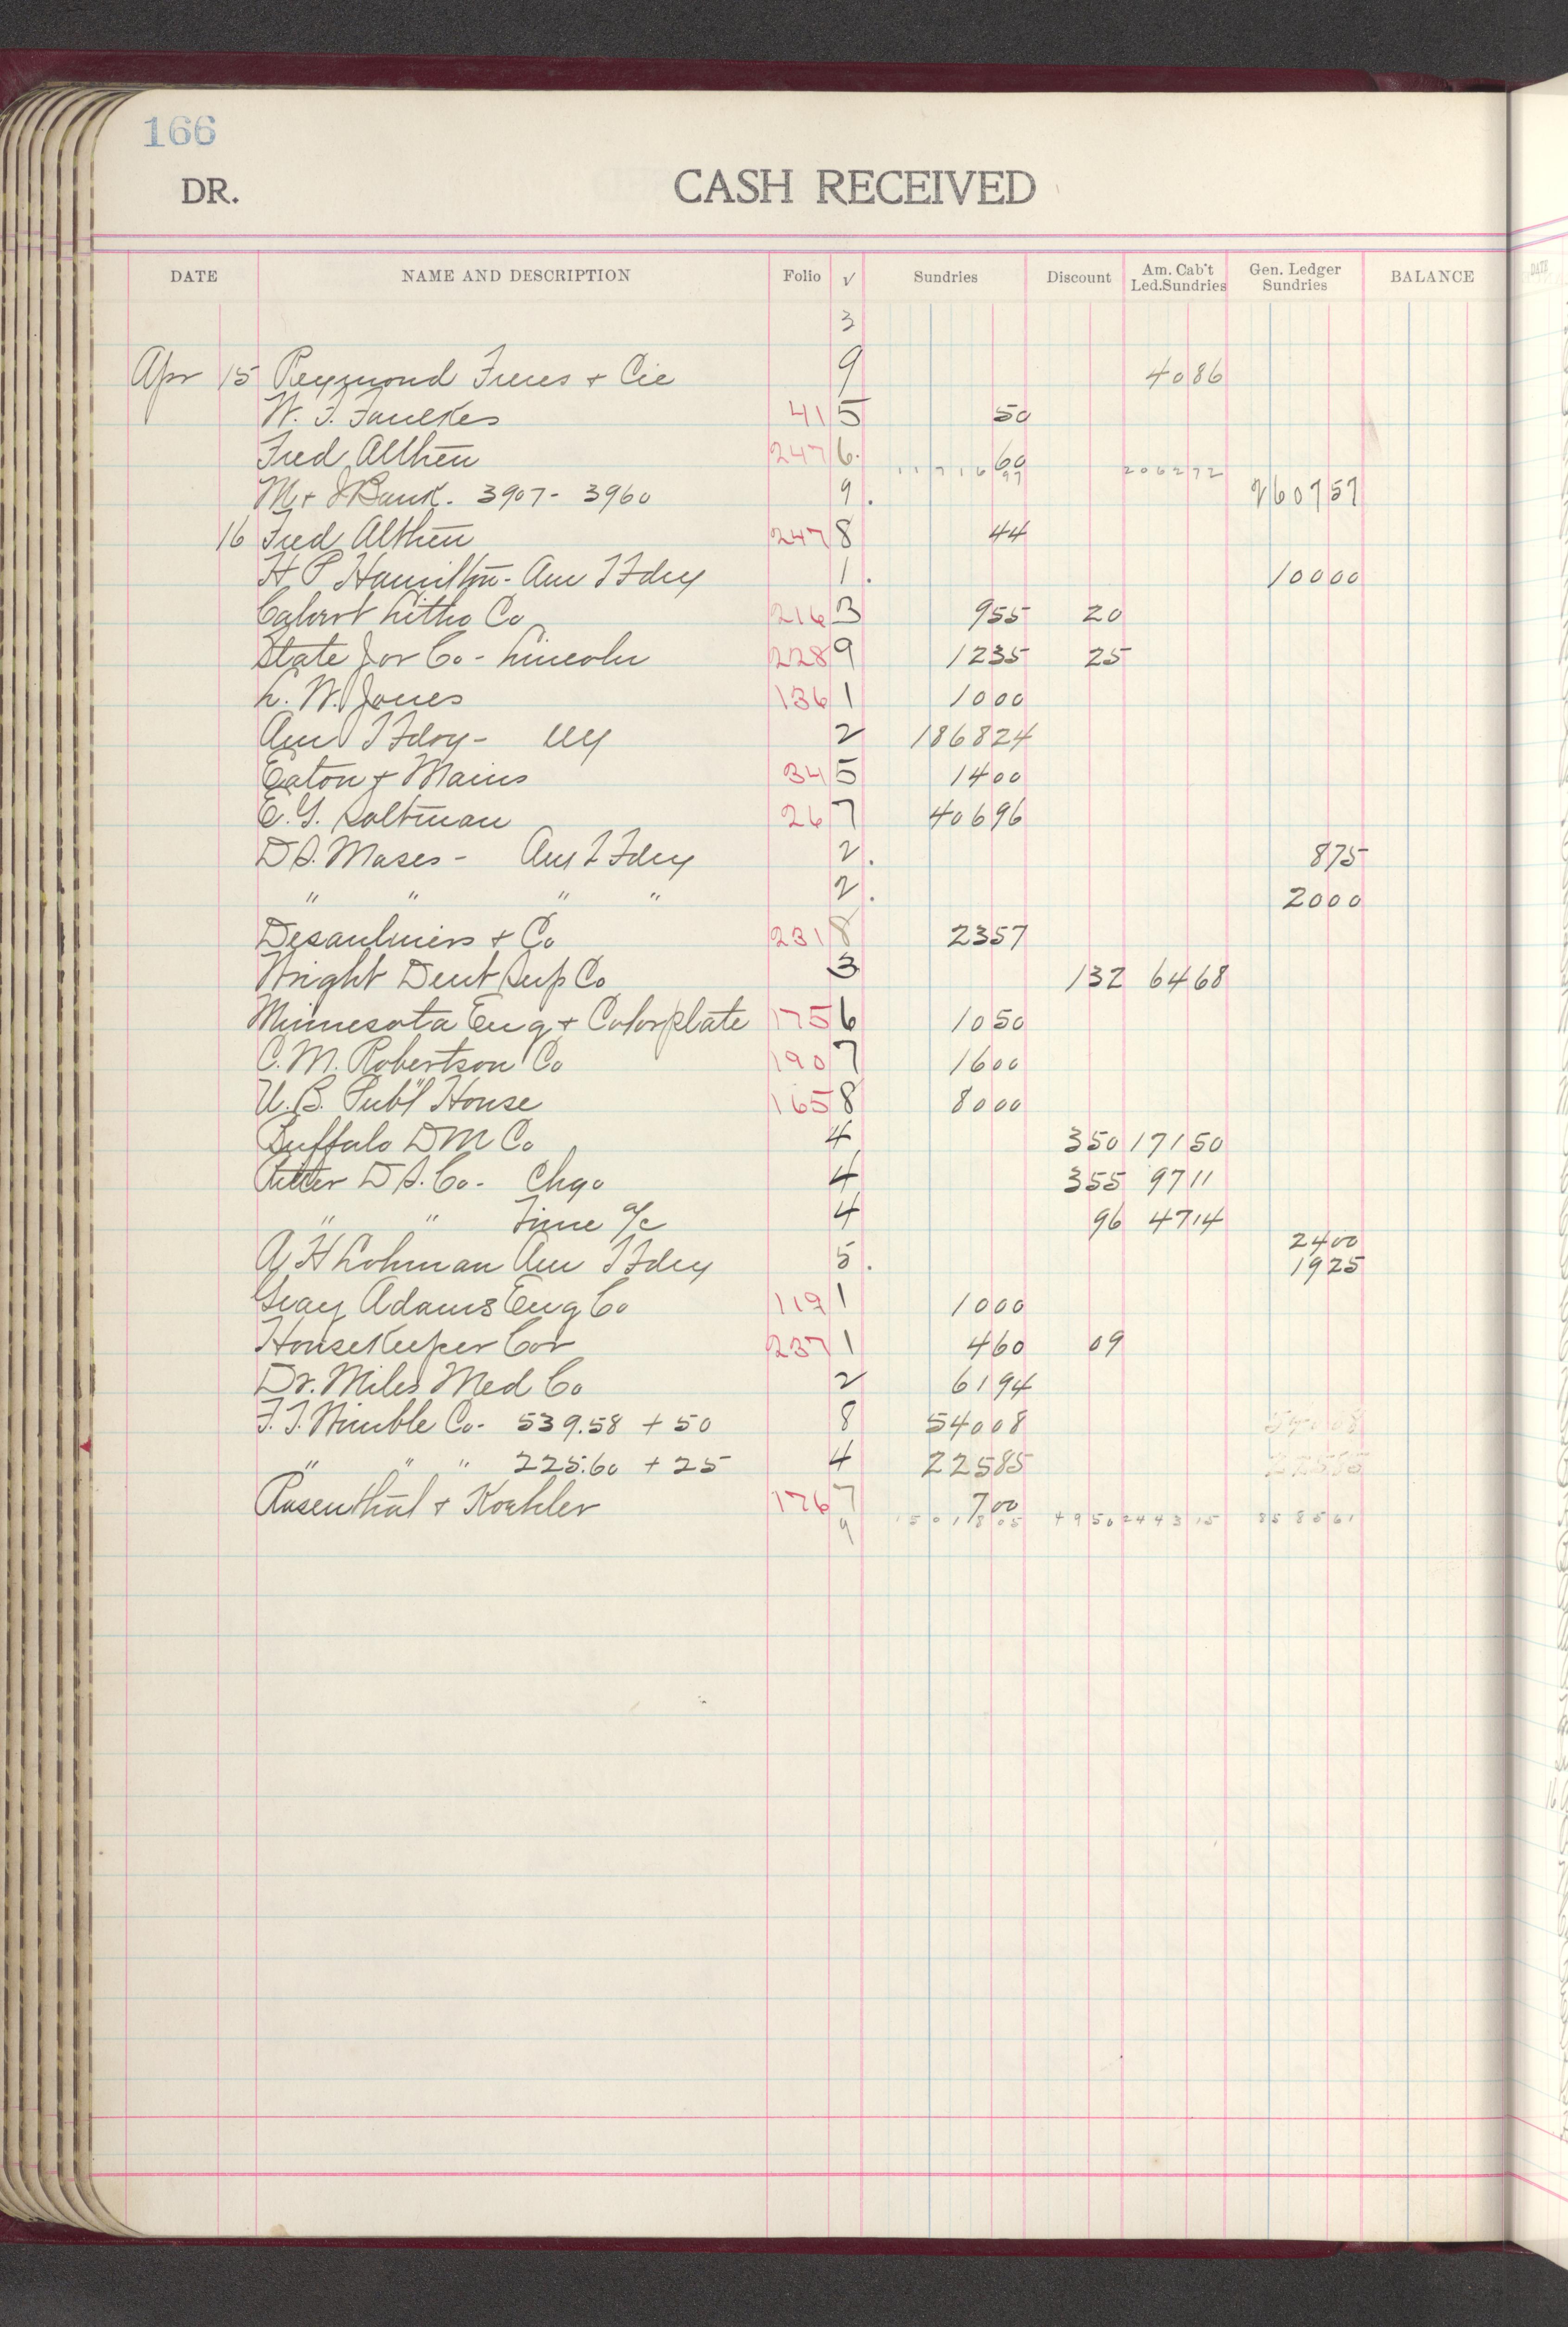 166
DR. CASH RECEIVED
DATE NAME AND DESCRIPTION Folio √ Sundries Discount Am. Cab't Led. Sundries Gen. Ledger Sundries BALANCE
3
Apr 15 Reymond Freres + Cie 9 4086
W. F. Faulkes 41 5 50
Fred Althen 247 6. 60
11716 97 206272
M + J Bank. 3907 - 3960 9. 260757
16 Fred Althen 247 8 44
H P Hamilton - Am T Fdry 1. 10000
Calvert Litho Co 216 3 955 20
State Jor Co - Lincoln 228 9 1235 25
L. W. Jones 136 1 1000
Am T Fdry - 2 186824
Eaton + Mains 34 5 1400
E. G. Saltman 26 7 40696
D S. Mases - Am T Fdry 2. 875
" " " " 2. 2000
Desaulniers + Co 231 8 2357
Wright Dent Sup Co 3 132 6468
Minnesota Eng + Colorplate 175 6 1050
C. M. Robertson Co 190 7 1600
U. B. Pub'l House 165 8 8000
Buffalo D M Co 4 350 17150
Ritter D S. Co. - Chgo 4 355 9711
" " Time a/c 4 96 4714
2400
A H Lohman Am T Fdry 5. 1925
Gray Adams Eng Co 119 1 1000
HouseKeeper Cor 237 1 460 09
Dr. Miles Med Co 2 6194
F. T. Wimble Co - 539.58 + 50 8 54008
" " " 225.60 + 25 4 22585
Rosenthal + Koehler 176 7 700
9 1501805 4950 244315 858561